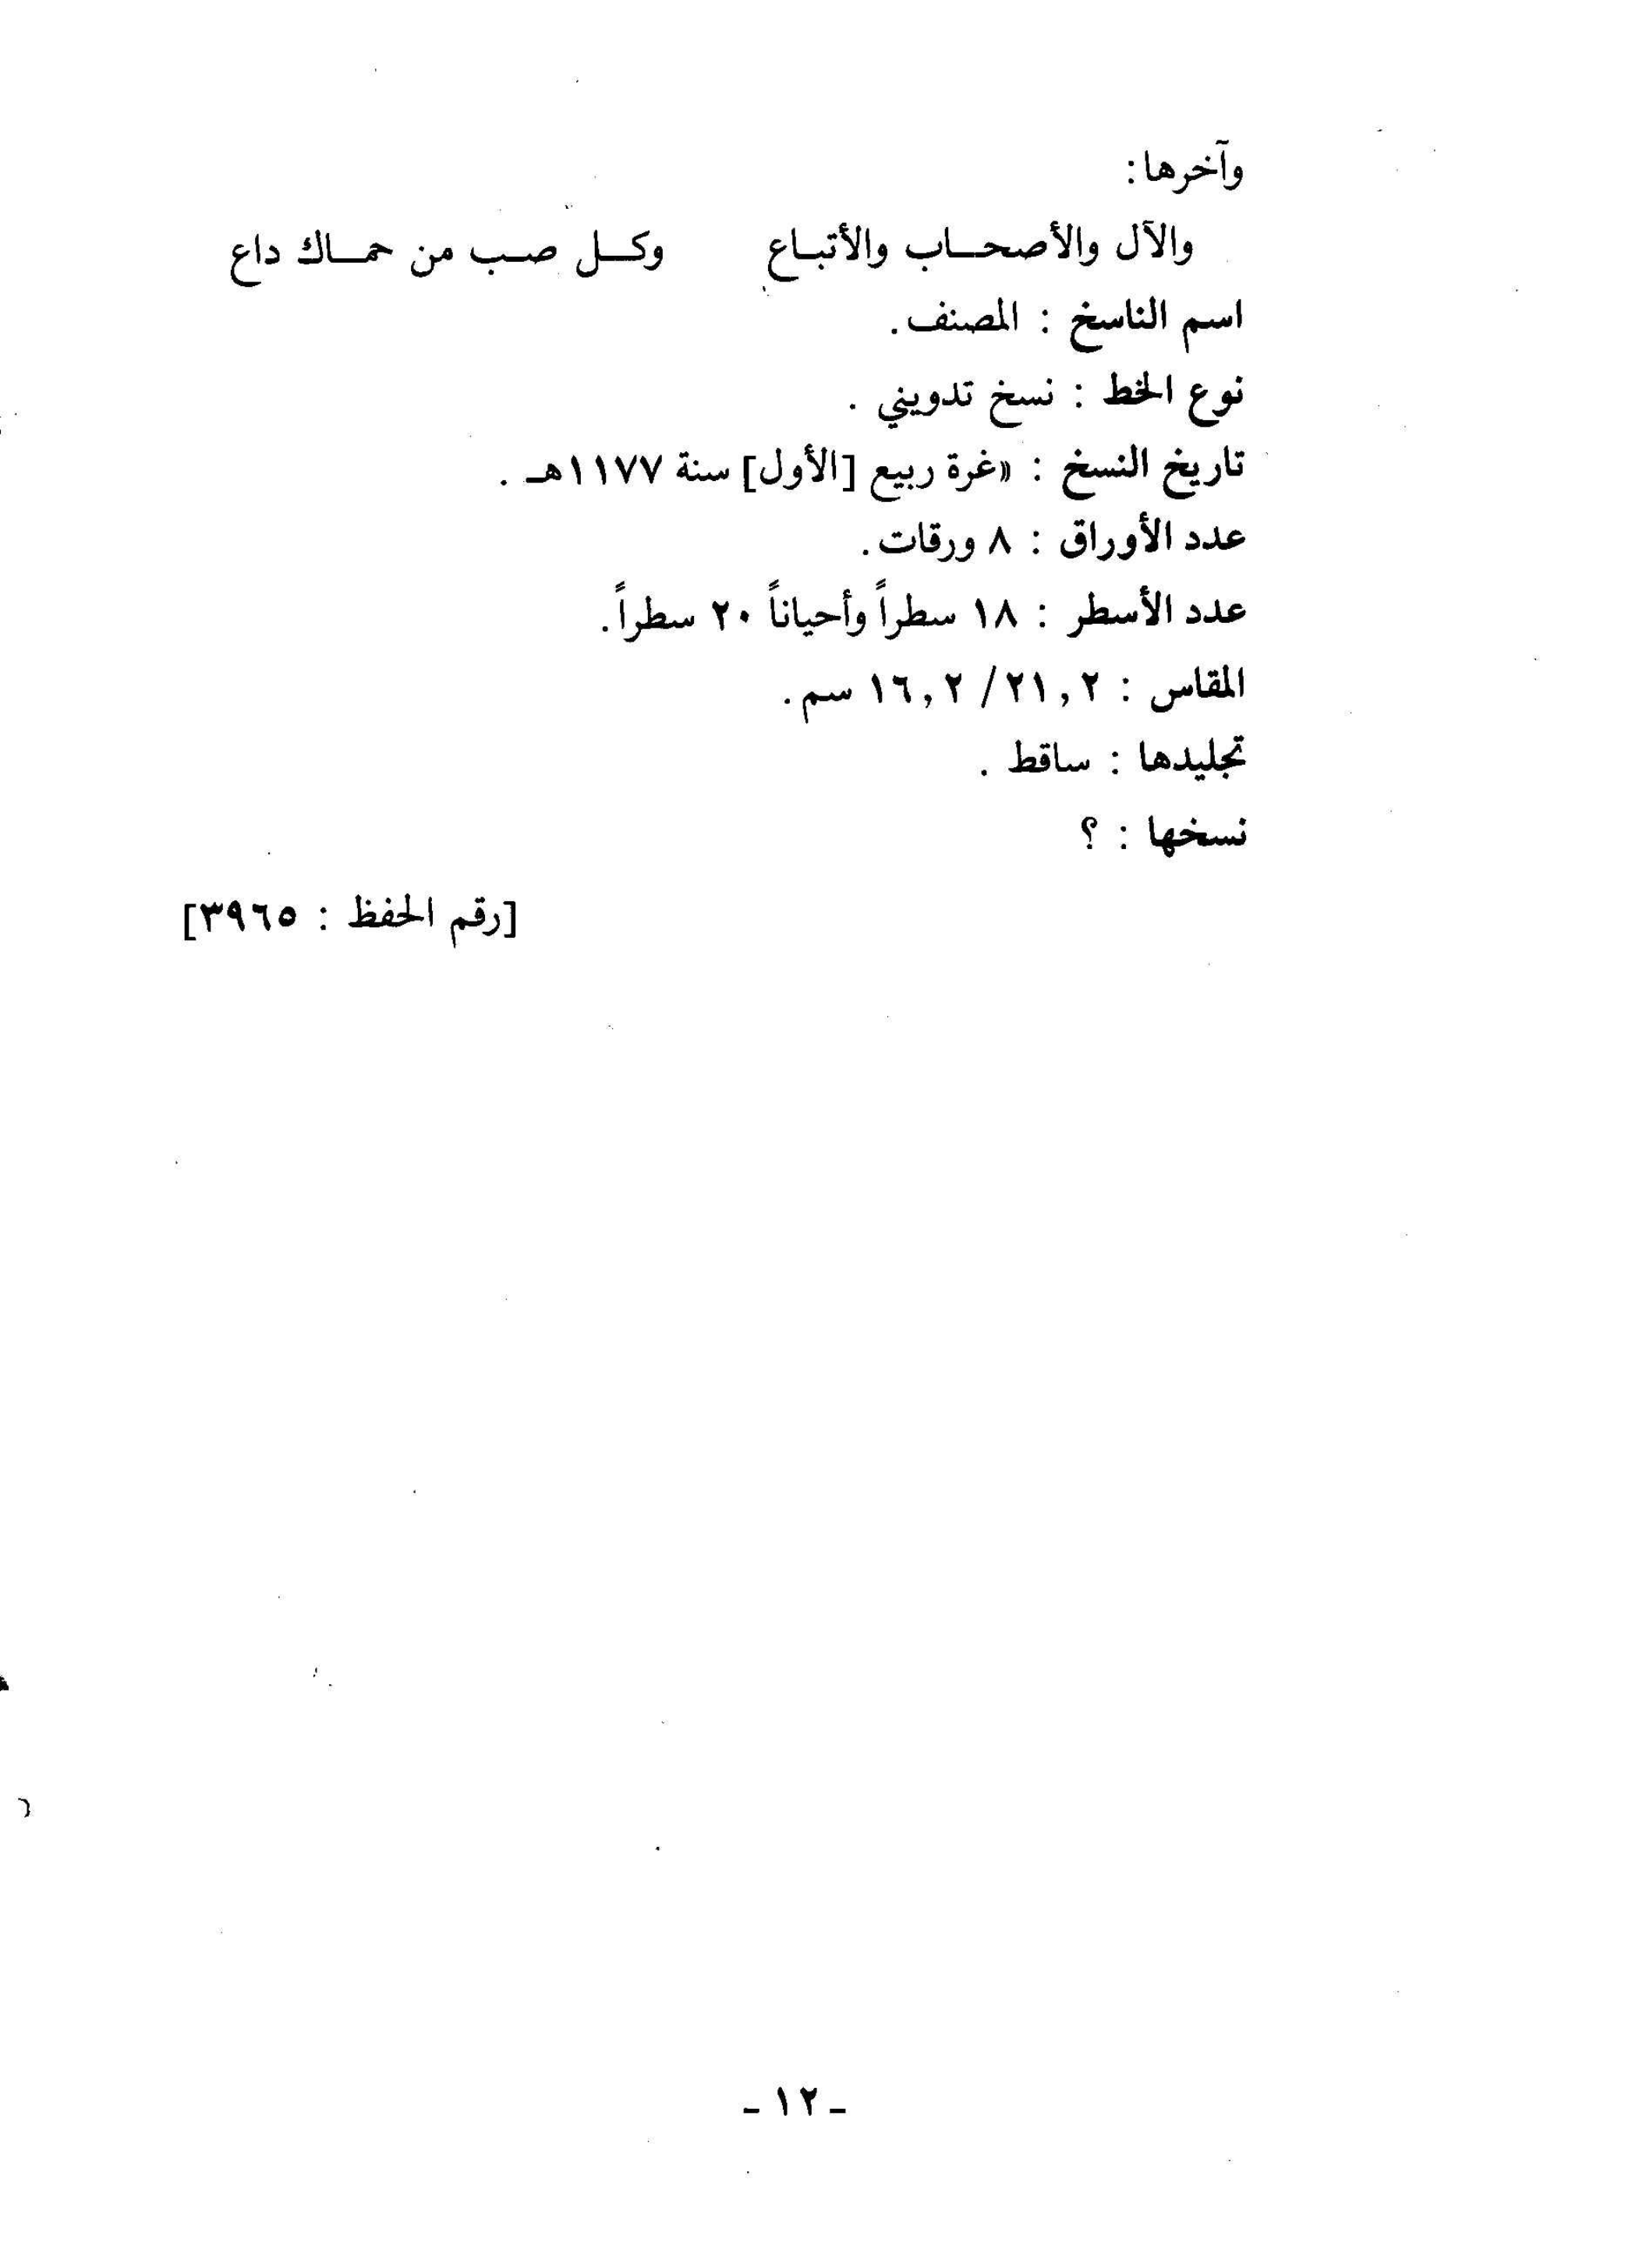 وآخرها:
والآل والأصحـاب والأتبـاع    وكـل صـب من حمـاك داع
اسم الناسخ : المصنف.
نوع الخط : نسخ تدويني .
تاريخ النسخ : «غرة ربيع [الأول] سنة ١١٧٧هـ .
عدد الأوراق : ٨ ورقات.
عدد الأسطر : ١٨ سطراً وأحياناً ٢٠ سطراً.
المقاس : ٢١,٢ / ١٦,٢ سم.
تجليدها : ساقط .
نسخها : ؟
[رقم الحفظ : ٣٩٦٥]
ـ ١٢ ـ